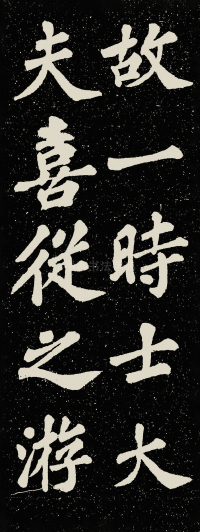 故一時士大
夫喜從之游